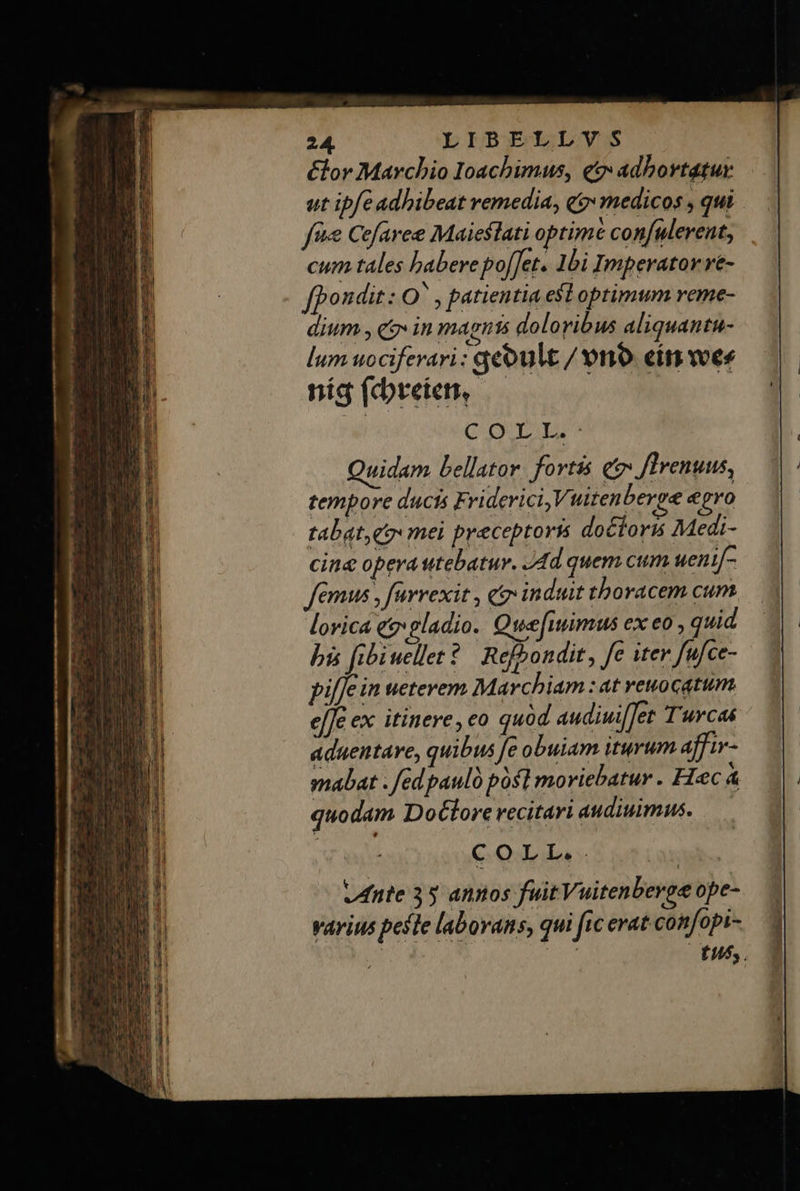 24 LIBELLVS
ctor Marchio Ioachimus, & adhortatur
ut ipse adhibeat remedia, & medicos, qui
suæ Cesareæ Maiestati optimè consulerent,
cum tales habere posset. Ibi Imperator re-
spondit: O`, patientia est optimum reme-
dium, & in magnis doloribus aliquantu-
lum uociferari: gedult / vnd ein we⸗
nig schreien.
COLL.
Quidam bellator fortis & strenuus,
tempore ducis Friderici, Vuitenbergæ ægro
tabat, & mei præceptoris doctoris Medi-
cinæ opera utebatur. Ad quem cum uenis-
semus, surrexit, & induit thoracem cum
lorica & gladio. Quæsiuimus ex eo, quid
his sibi uellet? Respondit, se iter susce-
pisse in ueterem Marchiam: at reuocatum
esse ex itinere, eo quòd audiuisset Turcas
aduentare, quibus se obuiam iturum affir-
mabat. sed paulò pòst moriebatur. Hæc à
quodam Doctore recitari audiuimus.
COLL.
Ante 35 annos fuit Vuitenbergæ ope-
rarius peste laborans, qui sic erat consopi-
tus,